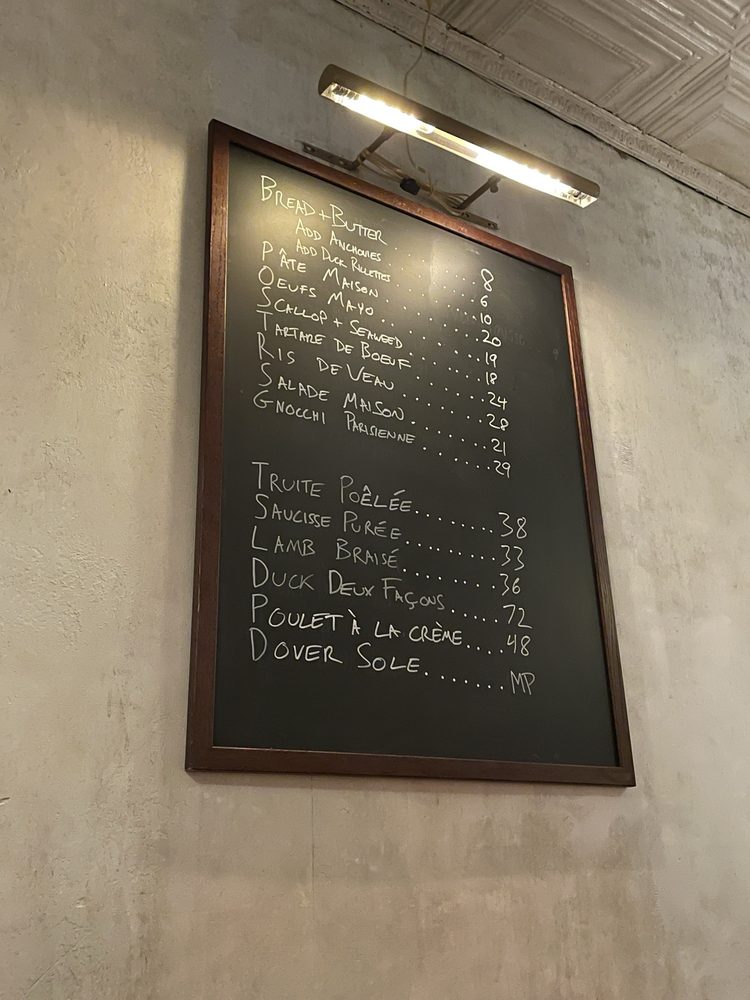 BREAD + BUTTER . . . . . . . 8
ADD ANCHOVIES . . . . . . . 6
ADD DUCK RILLETTES . . . . . . . 10
PÂTE MAISON . . . . . . . 20
OEUFS MAYO . . . . . . . 19
SCALLOP + SEAWEED . . . . . . . 18
TARTARE DE BOEUF . . . . . . . 24
RIS DE VEAU . . . . . . . 28
SALADE MAISON . . . . . . . 21
GNOCCHI PARISIENNE . . . . . . . 29
TRUITE POÊLÉE ........ 38
SAUCISSE PURÉE ........ 33
LAMB BRAISÉ ........ 36
DUCK DEUX FAÇONS ..... 72
POULET À LA CRÈME .... 48
DOVER SOLE ........ MP